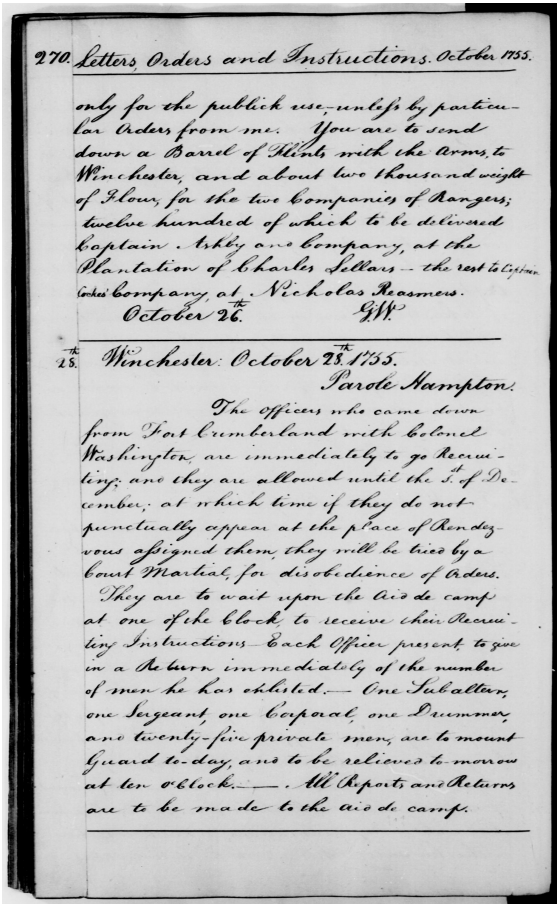 270. Letters, Orders and Instructions. October 1755.
only for the publick use, unless by particu-
lar Orders from me. You are to send
down a Barrel of Flints with the Arms, to
Winchester, and about two thousand weight
of Flour, for the two Companies of Rangers;
twelve hundred of which to be delivered
Captain Ashby and Company, at the
Plantation of Charles Sellars — the rest to Captain
Cockes' Company, at Nicholas Reasmers.
October 26th. GW.
28th. Winchester: October 28th. 1755.
Parole Hampton.
The Officers who came down
from Fort Cumberland with Colonel
Washington, are immediately to go Recrui-
ting; and they are allowed until the 1st. of De-
cember; at which time if they do not
punctually appear at the place of Rendez-
vous assigned them, they will be tried by a
Court Martial, for disobedience of Orders.
They are to wait upon the Aid de camp
at one of the Clock, to receive their Recrui-
ting Instructions — Each Officer present, to give
in a Return immediately of the number
of men he has enlisted. — One Subaltern,
one Sergeant, one Corporal, one Drummer,
and twenty-five private men, are to mount
Guard to-day, and to be relieved to-morrow
at ten o'Clock. — All Reports and Returns
are to be made to the Aid de camp.